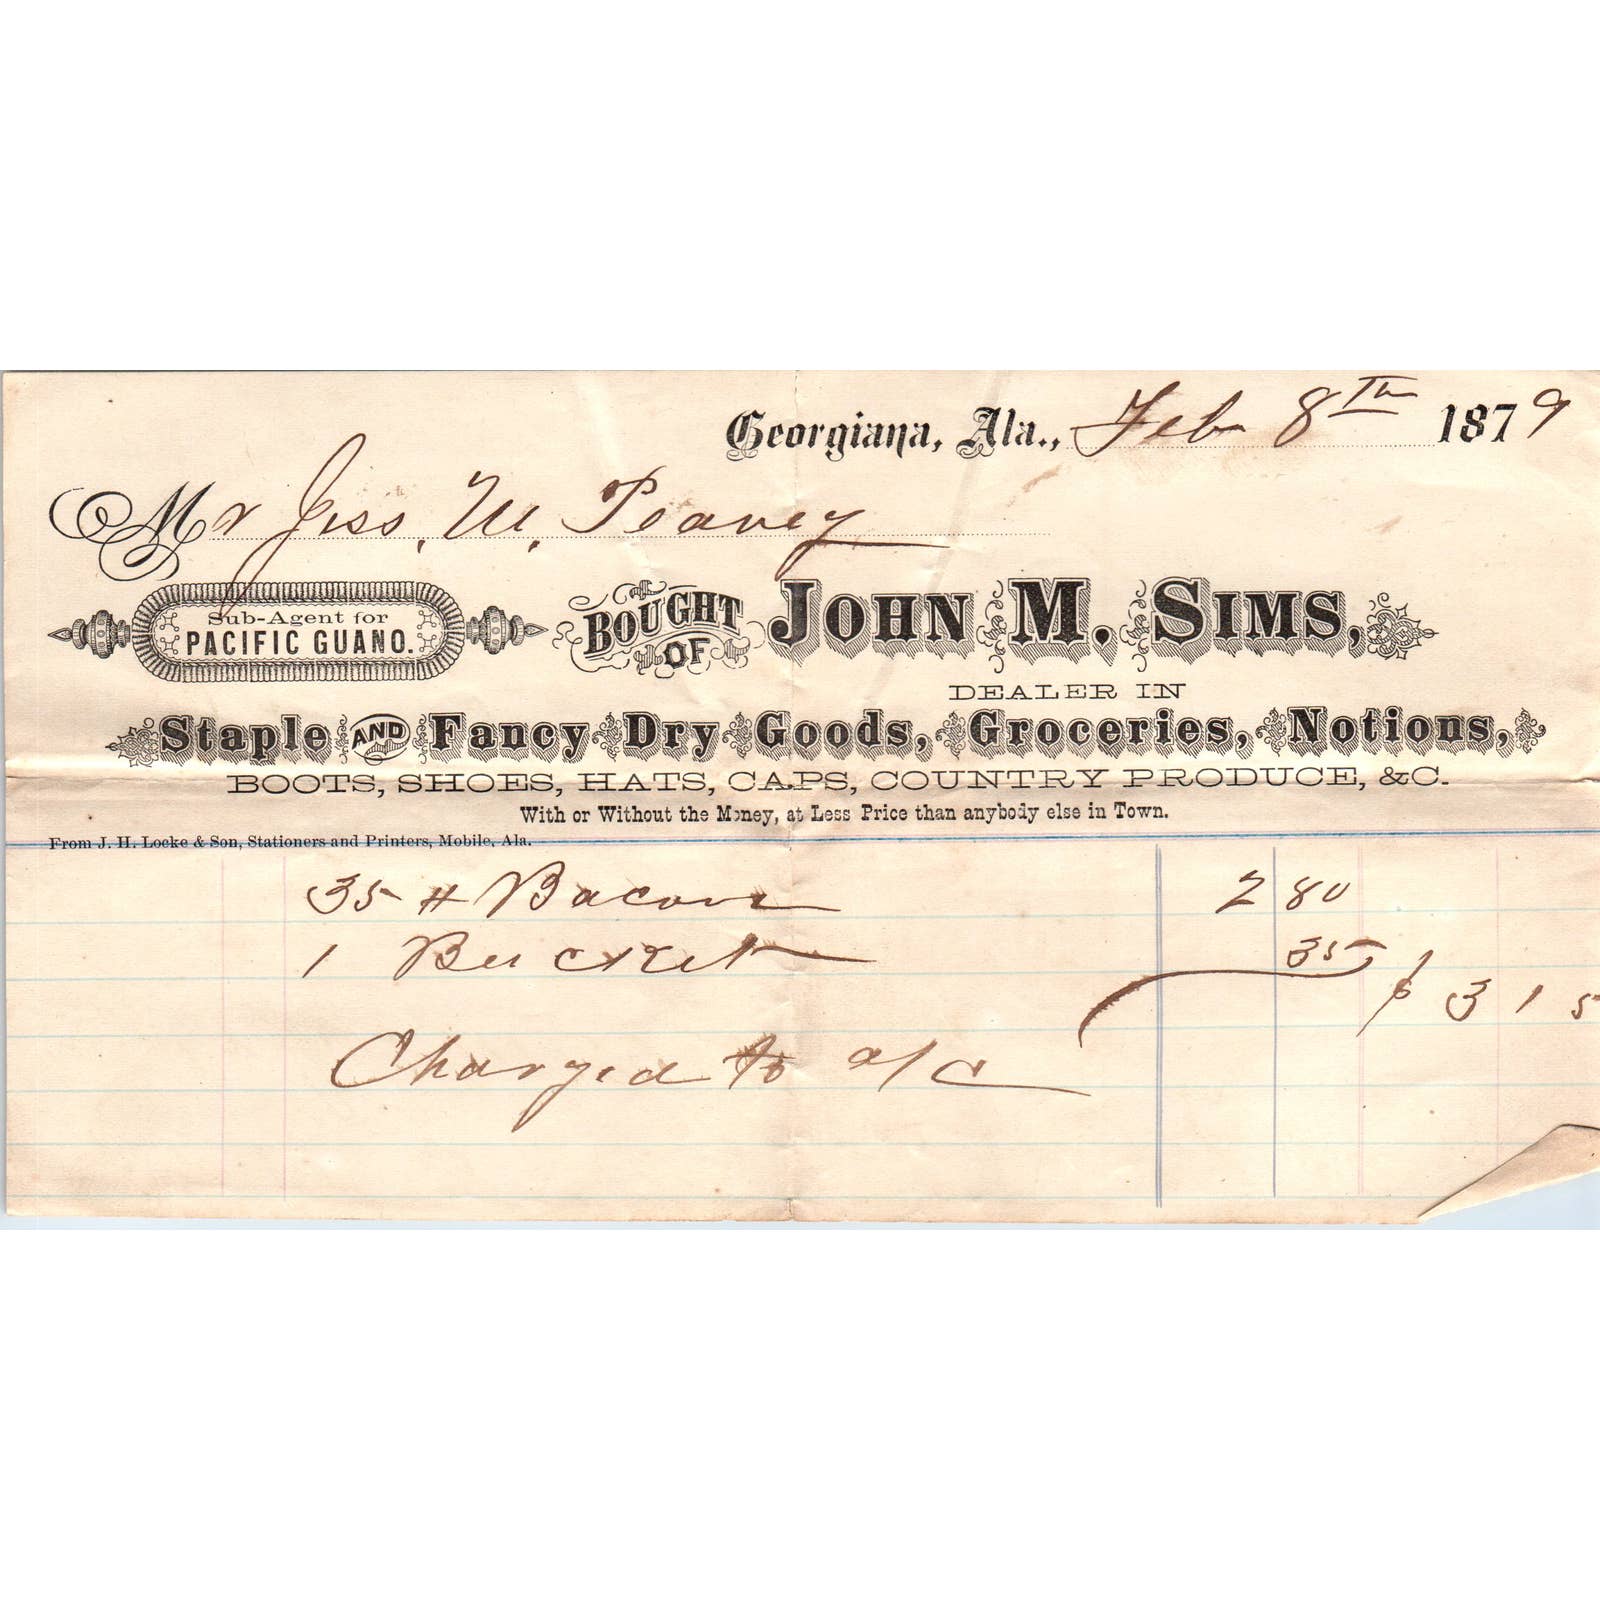 Georgiana, Ala., Feb 8th 1879
Mr Jess. W. Peavey
Sub-Agent for
PACIFIC GUANO.
BOUGHT OF JOHN M. SIMS,
DEALER IN
Staple AND Fancy Dry Goods, Groceries, Notions,
BOOTS, SHOES, HATS, CAPS, COUNTRY PRODUCE, &C.
With or Without the Money, at Less Price than anybody else in Town.
From J. H. Locke & Son, Stationers and Printers, Mobile, Ala.
35 # Bacon 2 80
1 Bucket 35 $ 3 15
Charged to a/c